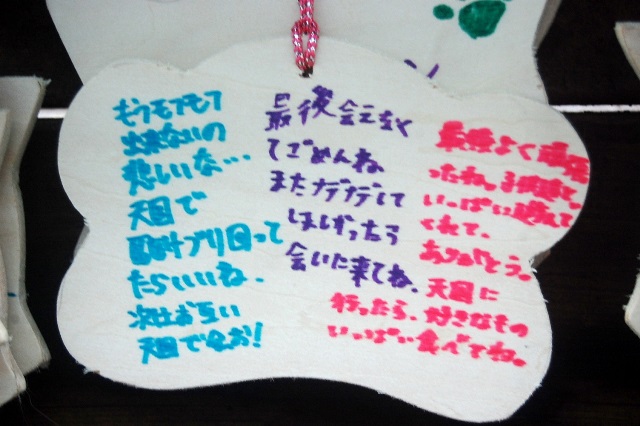 もうモフモフ
出来ないの
悲しいな…
天国で
野み汁ブリ回って
たらいいね.
次はお互い
天国で会お!
最後会えなく
てごめんね
またナデナデして
ほしかったら
会いに来てね.
最後よく頑張
ったね。子供達と
いっぱい遊んで
くれて.
ありがとう。
天国に
行ったら、好きなもの
いっぱい食べてね。